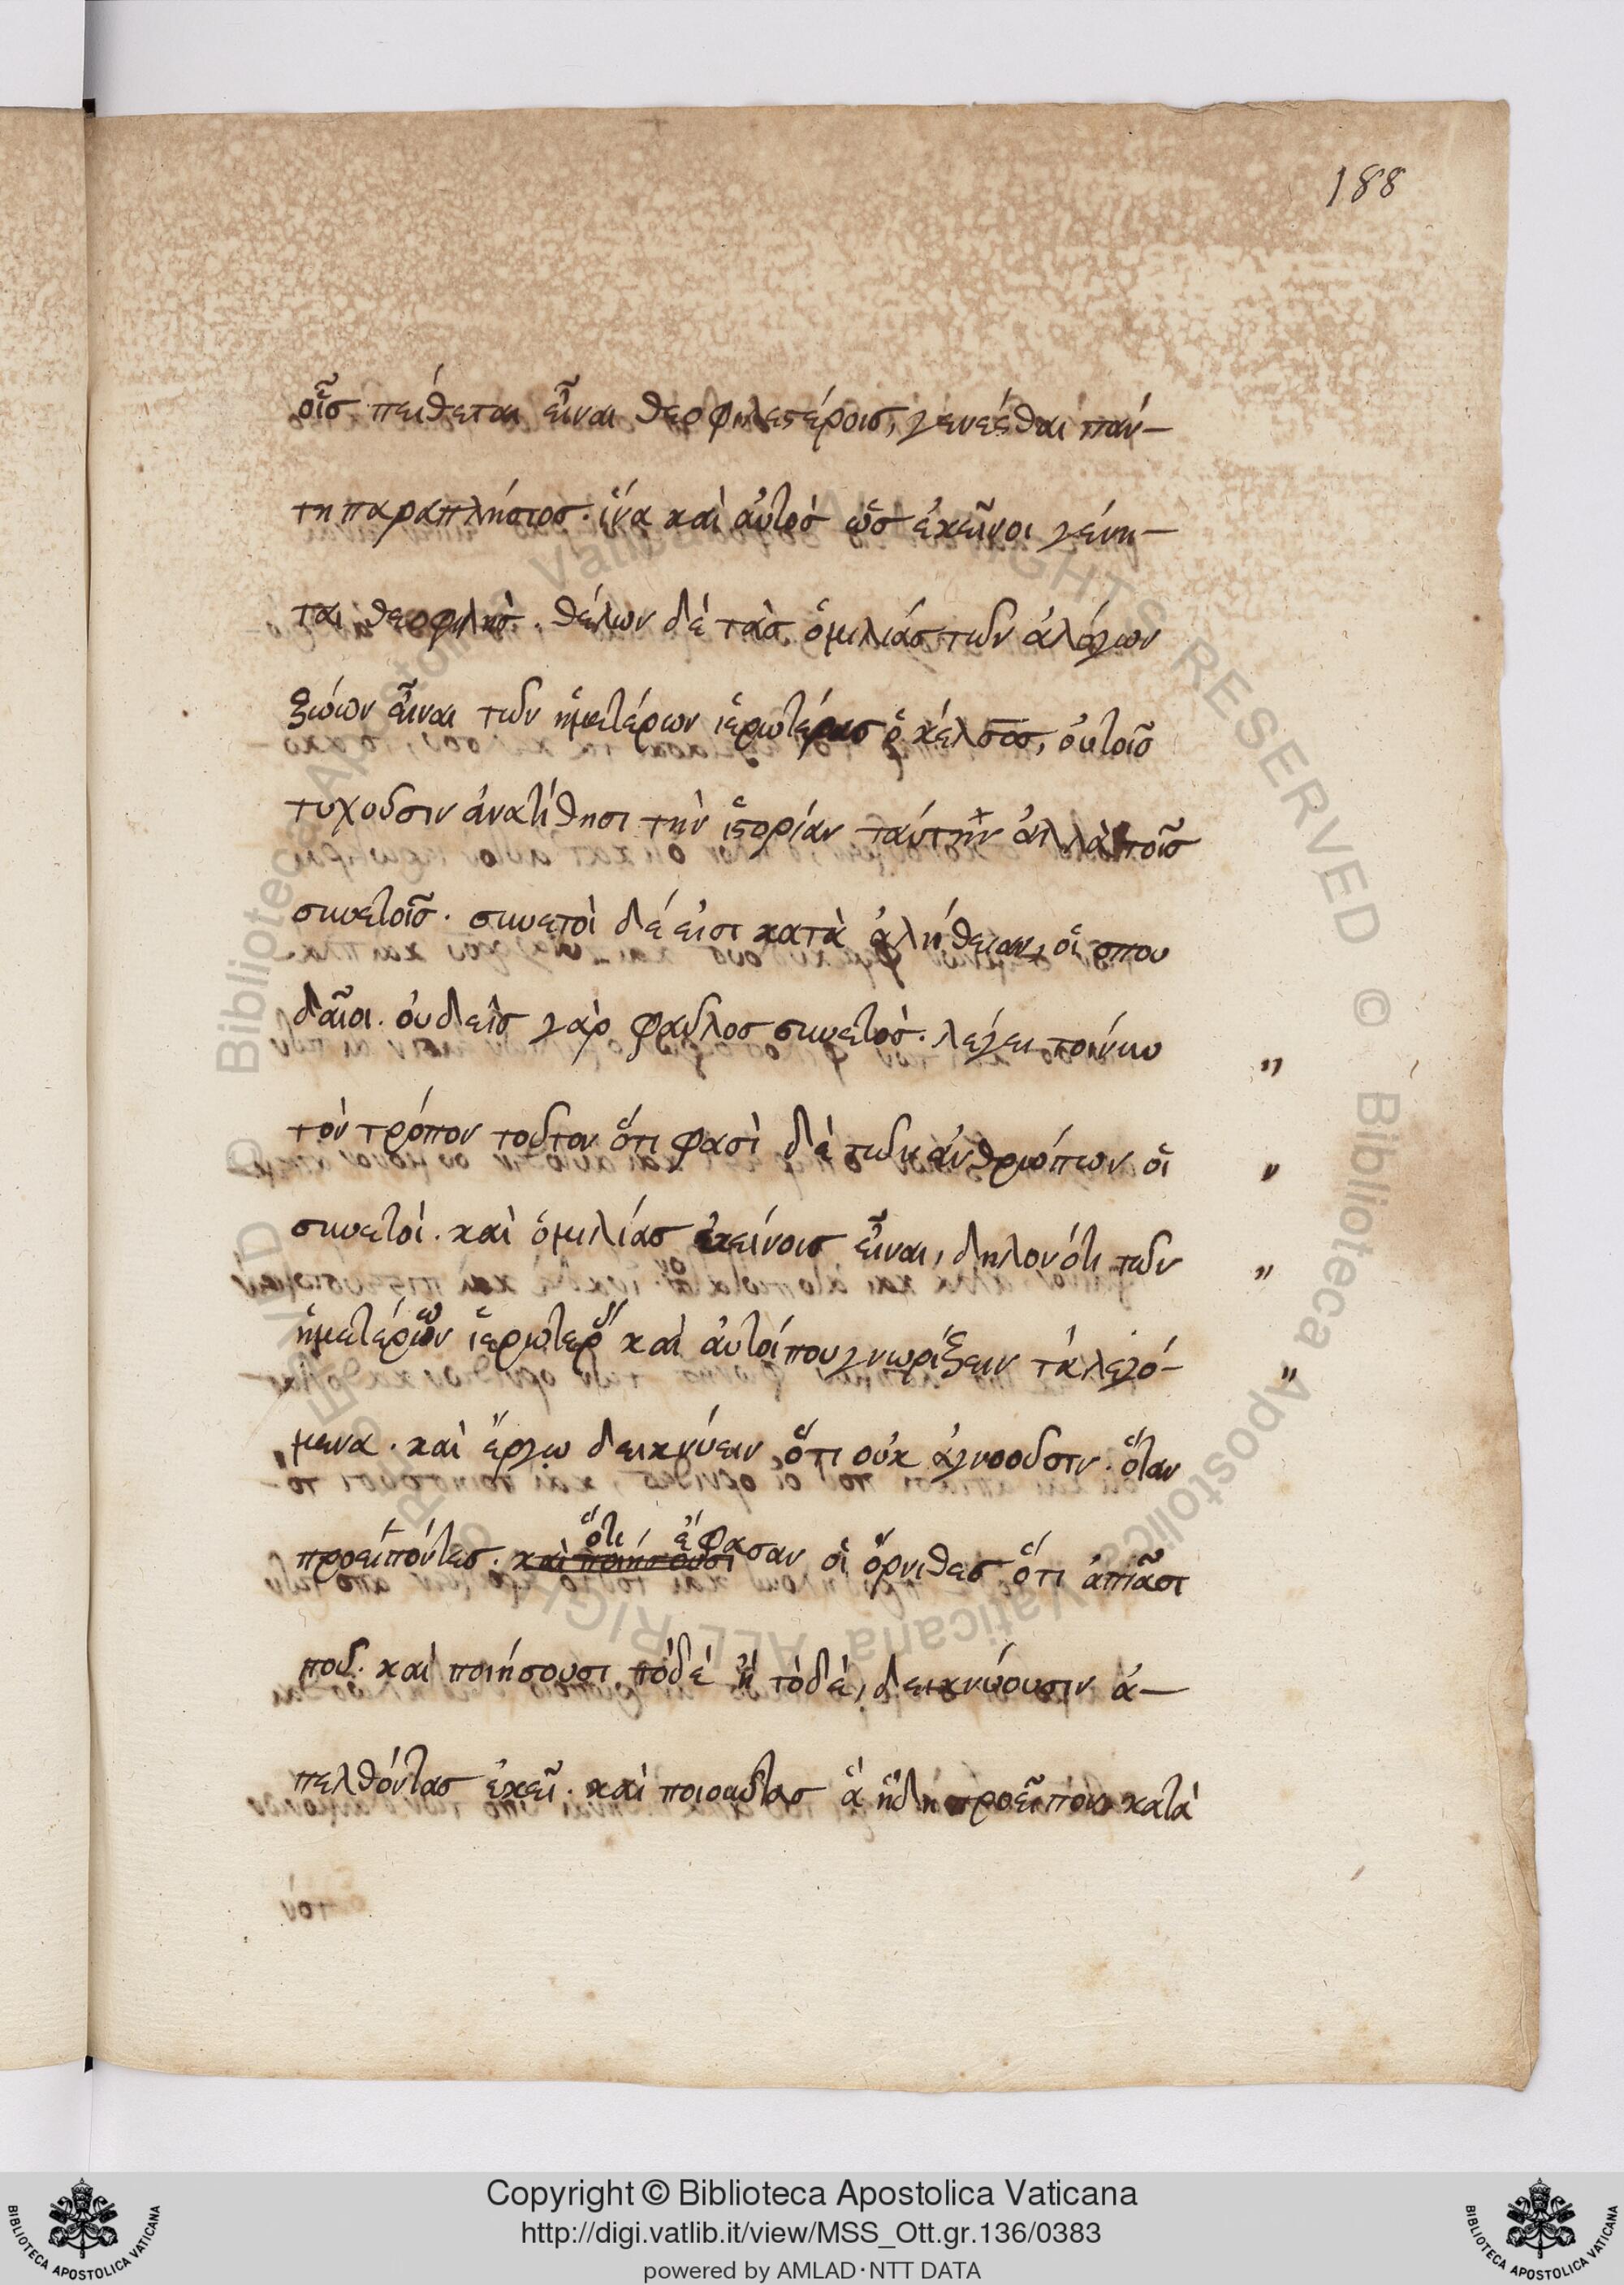 188
οἷς πείθεται εἶναι θεοφιλεστέροις, γενέσθαι πάν-
τη παραπλήσιος. ἵνα καὶ αὐτὸς ὡς ἐκεῖνοι γένη-
ται θεοφιλής. θέλων δὲ τὰς ὁμιλίας τῶν ἀλόγων
ζώων εἶναι τῶν ἡμετέρων ἱερωτέρας ὁ κέλσος, οὐ τοῖς
τυχοῦσιν ἀνατίθησι τὴν ἱστορίαν ταύτην ἀλλὰ τοῖς
συνετοῖς. συνετοὶ δέ εἰσι κατὰ ἀλήθειαν, οἱ σπου
δαῖοι. οὐδεὶς γὰρ φαῦλος συνετός. λέγει τοίνυν
τὸν τρόπον τοῦτον ὅτι φασὶ δὲ τῶν ἀνθρώπων οἱ
συνετοί. καὶ ὁμιλίας ἐκείνοις εἶναι, δηλονότι τῶν
ἡμετέρων ἱερωτέρ καὶ αὐτοί που γνωρίζειν τὰ λεγό-
μενα. καὶ ἔργω δεικνύειν ὅτι οὐκ ἀγνοοῦσιν. ὅταν
προειπόντες. καὶ ποιήσουσι ὅτι ἔφασαν οἱ ὄρνιθες ὅτι ἀπίασι
που. καὶ ποιήσουσι τόδε ἢ τόδε, δεικνύουσιν ἀ-
πελθόντας ἐκεῖ. καὶ ποιοῦντας ἃ ἤδη προεῖπον κατὰ
Copyright © Biblioteca Apostolica Vaticana
http://digi.vatlib.it/view/MSS_Ott.gr.136/0383
powered by AMLAD·NTT DATA